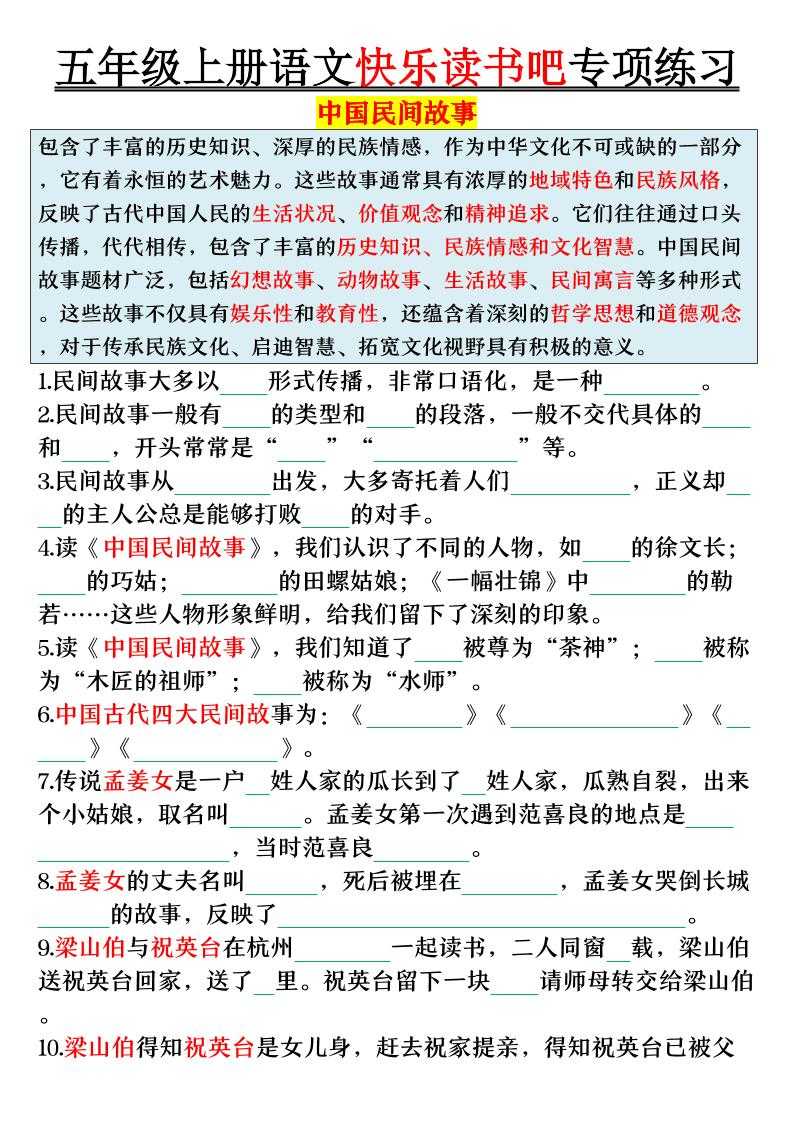 五年级上册语文快乐读书吧专项练习
中国民间故事
包含了丰富的历史知识、深厚的民族情感，作为中华文化不可或缺的一部分
，它有着永恒的艺术魅力。这些故事通常具有浓厚的地域特色和民族风格，
反映了古代中国人民的生活状况、价值观念和精神追求。它们往往通过口头
传播，代代相传，包含了丰富的历史知识、民族情感和文化智慧。中国民间
故事题材广泛，包括幻想故事、动物故事、生活故事、民间寓言等多种形式
。这些故事不仅具有娱乐性和教育性，还蕴含着深刻的哲学思想和道德观念
，对于传承民族文化、启迪智慧、拓宽文化视野具有积极的意义。
1.民间故事大多以____形式传播，非常口语化，是一种________。
2.民间故事一般有____的类型和____的段落，一般不交代具体的____
和____，开头常常是“____”“____________”等。
3.民间故事从________出发，大多寄托着人们__________，正义却__
__的主人公总是能够打败____的对手。
4.读《中国民间故事》，我们认识了不同的人物，如____的徐文长；
____的巧姑；________的田螺姑娘；《一幅壮锦》中________的勒
若……这些人物形象鲜明，给我们留下了深刻的印象。
5.读《中国民间故事》，我们知道了____被尊为“茶神”；____被称
为“木匠的祖师”；____被称为“水师”。
6.中国古代四大民间故事为：《________》《______________》《__
____》《____________》。
7.传说孟姜女是一户__姓人家的瓜长到了__姓人家，瓜熟自裂，出来
个小姑娘，取名叫______。孟姜女第一次遇到范喜良的地点是____
________________，当时范喜良________。
8.孟姜女的丈夫名叫______，死后被埋在________，孟姜女哭倒长城
______的故事，反映了__________________________________。
9.梁山伯与祝英台在杭州________一起读书，二人同窗__载，梁山伯
送祝英台回家，送了__里。祝英台留下一块____请师母转交给梁山伯
。
10.梁山伯得知祝英台是女儿身，赶去祝家提亲，得知祝英台已被父